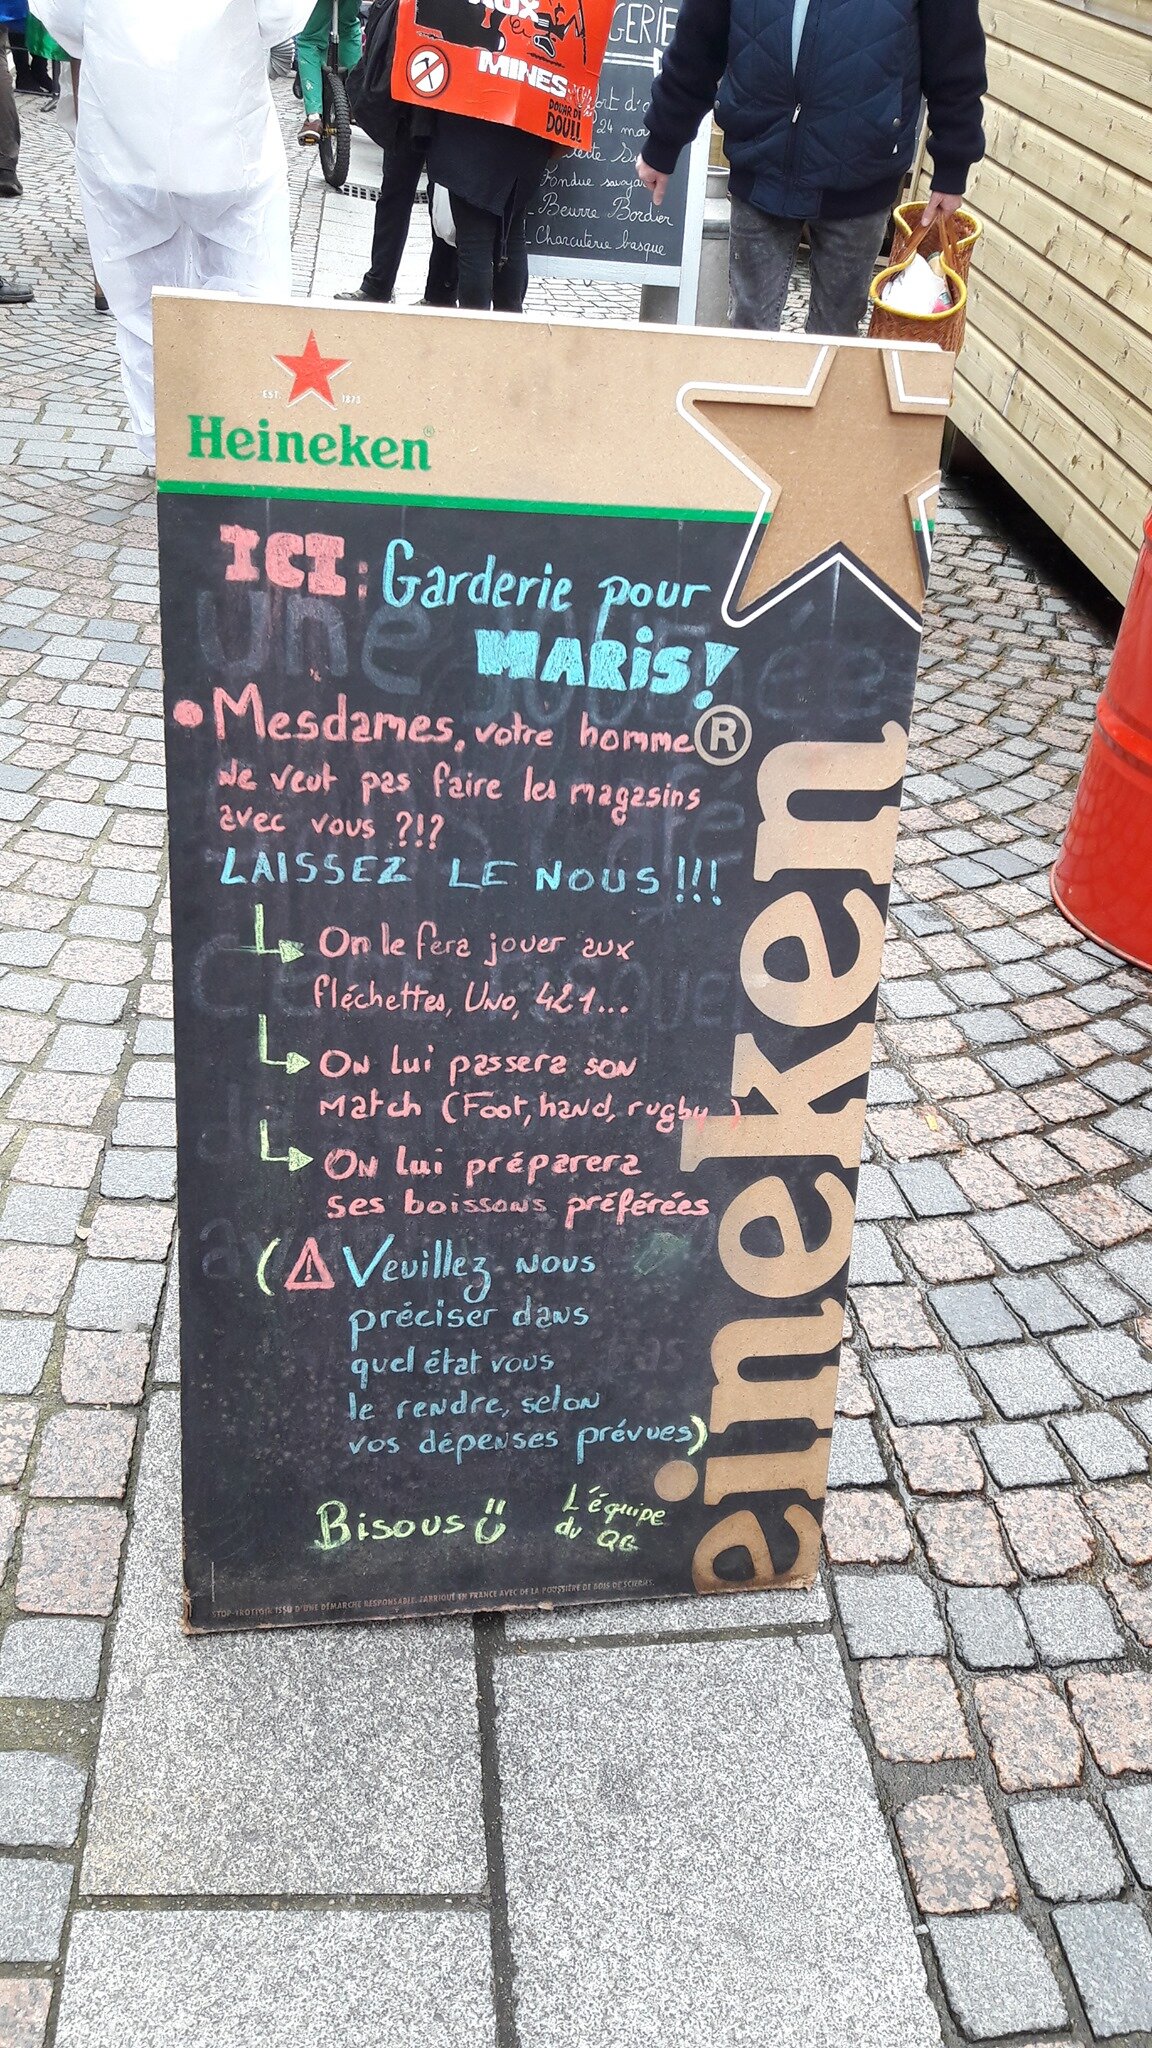 AUX
MINES
DOUAR DI
DOUL!
GERIE
24 ma
Fondue savoya
- Beurre Bordier
- Charcuterie basque
EST. 1873
Heineken®
ICI: Garderie pour
MARIS!
• Mesdames, votre homme
ne veut pas faire les magasins
avec vous ?!?
LAISSEZ LE NOUS!!!
On le fera jouer aux
fléchettes, UNO, 421...
On lui passera son
match (Foot, hand, rugby...)
On lui préparera
ses boissons préférées
(⚠ Veuillez nous
préciser dans
quel état vous
le rendre, selon
vos dépenses prévues)
Bisous
L'équipe
du QG
eineken®
STOP-TROTTOIR ISSU D'UNE DÉMARCHE RESPONSABLE. FABRIQUÉ EN FRANCE AVEC DE LA POUSSIÈRE DE BOIS DE SCIERIES.